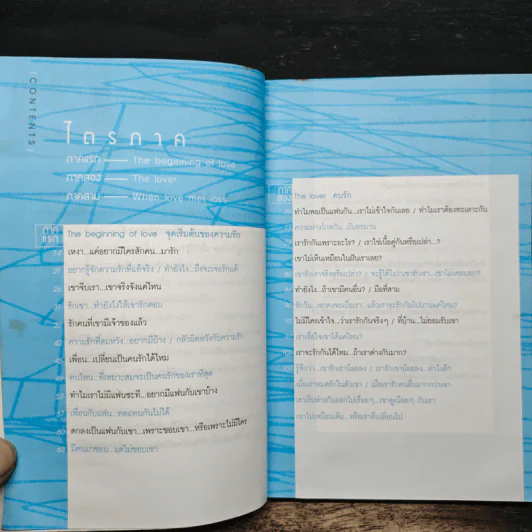 CONTENTS
ไตรภาค
ภาคแรก — The beginning of love
ภาคสอง — The lover
ภาคสาม — When love met loss
ภาคแรก The beginning of love จุดเริ่มต้นของความรัก
เหงา...แค่อยากมีใครสักคน...มารัก
อยากรู้จักความรักที่แท้จริง / ทำยังไง...ถึงจะเจอรักแท้
เขาจีบเรา...เขาจริงจังแค่ไหน
รักเขา...ทำยังไงให้เขารักตอบ
รักคนที่เขามีเจ้าของแล้ว
ความรักที่สมหวัง...อยากมีบ้าง / กลัวผิดหวังกับความรัก
เพื่อน...เปลี่ยนเป็นคนรักได้ไหม
คนไหน...ที่เหมาะสมจะเป็นคนรักของเราที่สุด
ทำไมเราไม่มีแฟนซะที...อยากมีแฟนกับเขาบ้าง
เพื่อนกับแฟน...ทดแทนกันไม่ได้
60 ตกลงเป็นแฟนกับเขา...เพราะชอบเขา...หรือเพราะไม่มีใคร
มีคนมาชอบ...แต่ไม่ชอบเขา
ภาคสอง The lover คนรัก
ทำไมพอเป็นแฟนกัน...เราไม่เข้าใจกันเลย / ทำไมเราต้องทะเลาะกัน
ความห่างไกลกัน...มันทรมาน
เรารักกันเพราะอะไร? / เราใช่เนื้อคู่กันหรือเปล่า..?
เขาไม่เห็นเหมือนในฝันเราเลย?
เขารักเราจริงรึเปล่า / จะรู้ได้ไงว่าเขารักเรา...เขาไม่เคยบอก
ทำยังไง..ถ้าเขามีคนอื่น? / มือที่สาม
ไม่มีใครเข้าใจ...ว่าเรารักกันจริงๆ / ที่บ้าน...ไม่ยอมรับเขา
เราเชื่อใจเขาได้แค่ไหน?
เราจะรักกันได้ไหม...ถ้าเราต่างกันมาก?
รู้สึกว่า...เขารักเราน้อยลง / เรารักเขาน้อยลง...ทำไงดี?
เมื่อเราหมดรักในตัวเขา / เมื่อเรารักคนอื่นมากกว่าเขา
เราเริ่มห่างกันออกไปเรื่อยๆ...เขาดูเฉื่อยๆ กับเรา
เขาไม่เหมือนเดิม...หรือเราที่เปลี่ยนไป